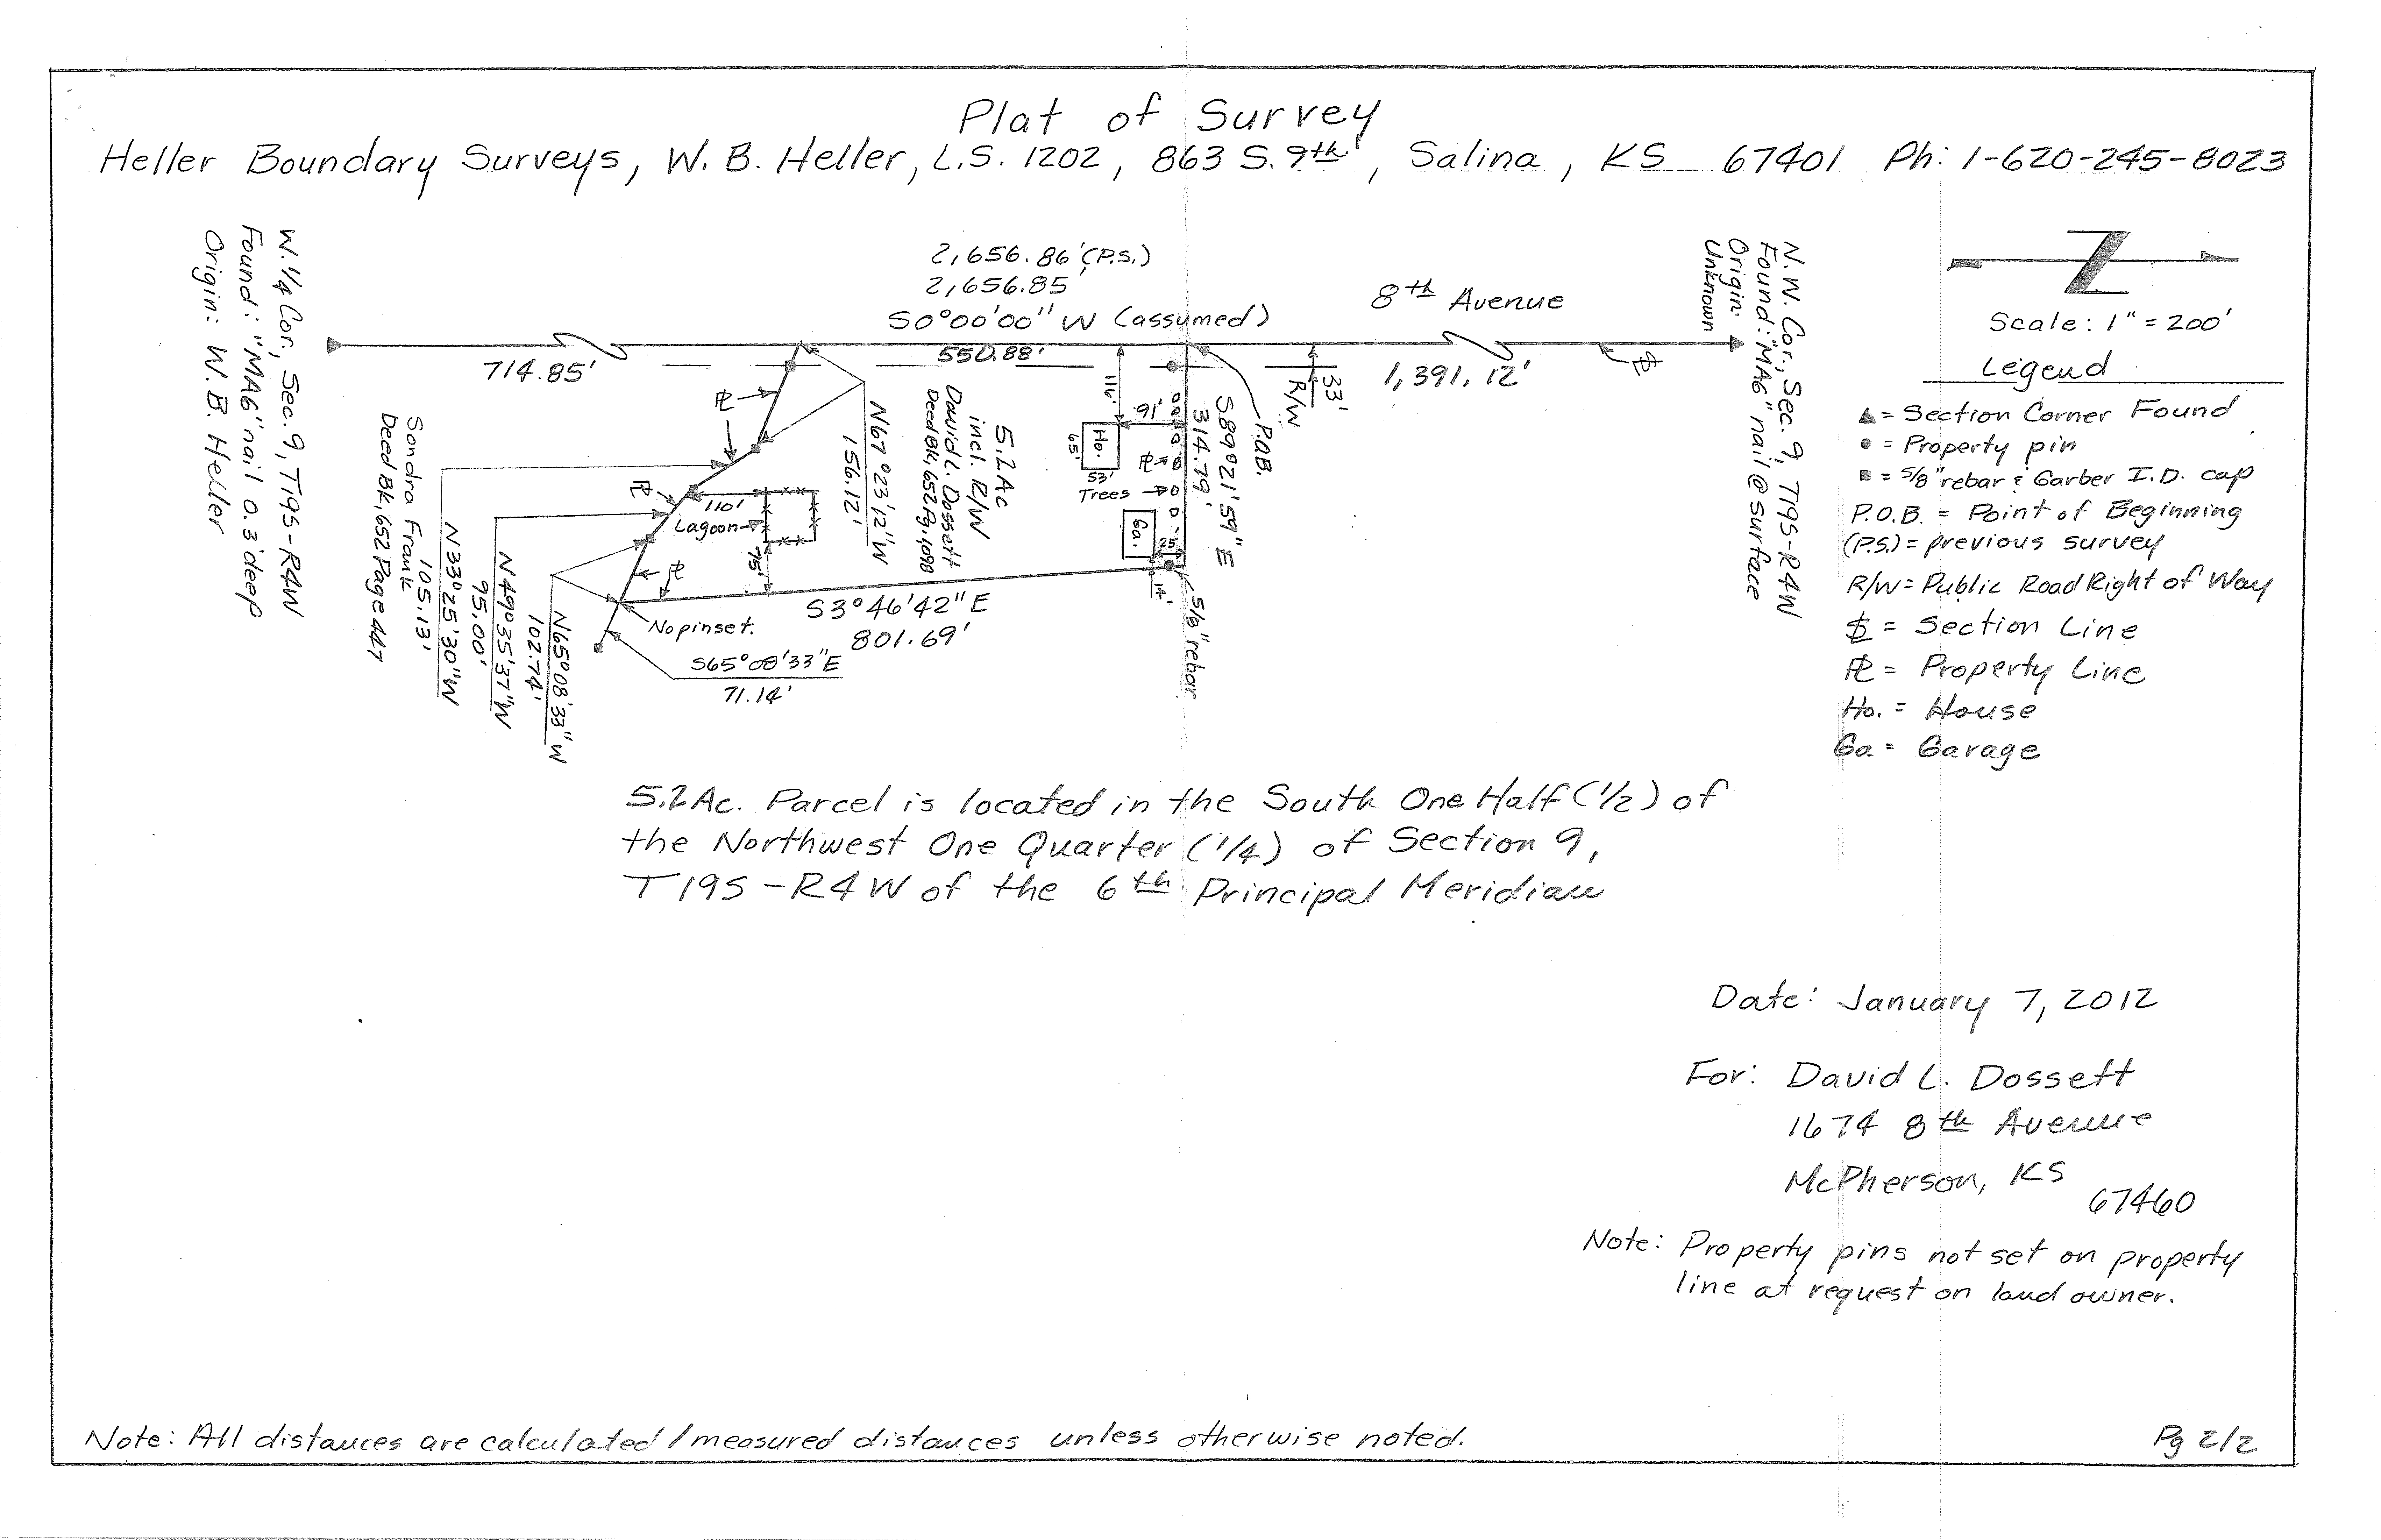 Plat of Survey
Heller Boundary Surveys, W. B. Heller, L.S. 1202, 863 S. 9th, Salina, KS 67401 Ph: 1-620-245-8023
W. 1/4 Cor., Sec. 9, T19S-R4W
Found: "MAG" nail 0.3' deep
Origin: W. B. Heller
2,656.86' (P.S.)
2,656.85'
S0°00'00" W (assumed)
8th Avenue
N. W. Cor., Sec. 9, T19S-R4W
Found: "MAG" nail @ surface
Origin:
Unknown
714.85'
550.88'
1,391.12'
33'
R/W
P.O.B.
S89°21'59" E
314.79'
116'
91'
Ho.
65'
53'
Trees
Ga.
25'
14'
5/8" rebar
5.2 Ac
incl. R/W
David L. Dossett
Deed Bk, 652 Pg, 1098
N67°23'12" W
156.12'
110'
Lagoon
75'
S3°46'42" E
801.69'
No pin set.
S65°08'33" E
71.14'
N65°08'33" W
102.74'
N49°35'37" W
95.00'
N33°25'30" W
105.13'
Sondra Frank
Deed Bk, 652 Page 447
Scale: 1" = 200'
Legend
▲ = Section Corner Found
● = Property pin
■ = 5/8" rebar & Garber I.D. cap
P.O.B. = Point of Beginning
(P.S.) = previous survey
R/W = Public Road Right of Way
= Section Line
PL = Property Line
Ho. = House
Ga = Garage
5.2 Ac. Parcel is located in the South One Half (1/2) of
the Northwest One Quarter (1/4) of Section 9,
T19S-R4W of the 6th Principal Meridian
Date: January 7, 2012
For: David L. Dossett
1674 8th Avenue
McPherson, KS
67460
Note: Property pins not set on property
line at request on land owner.
Note: All distances are calculated/measured distances unless otherwise noted.
Pg 2/2